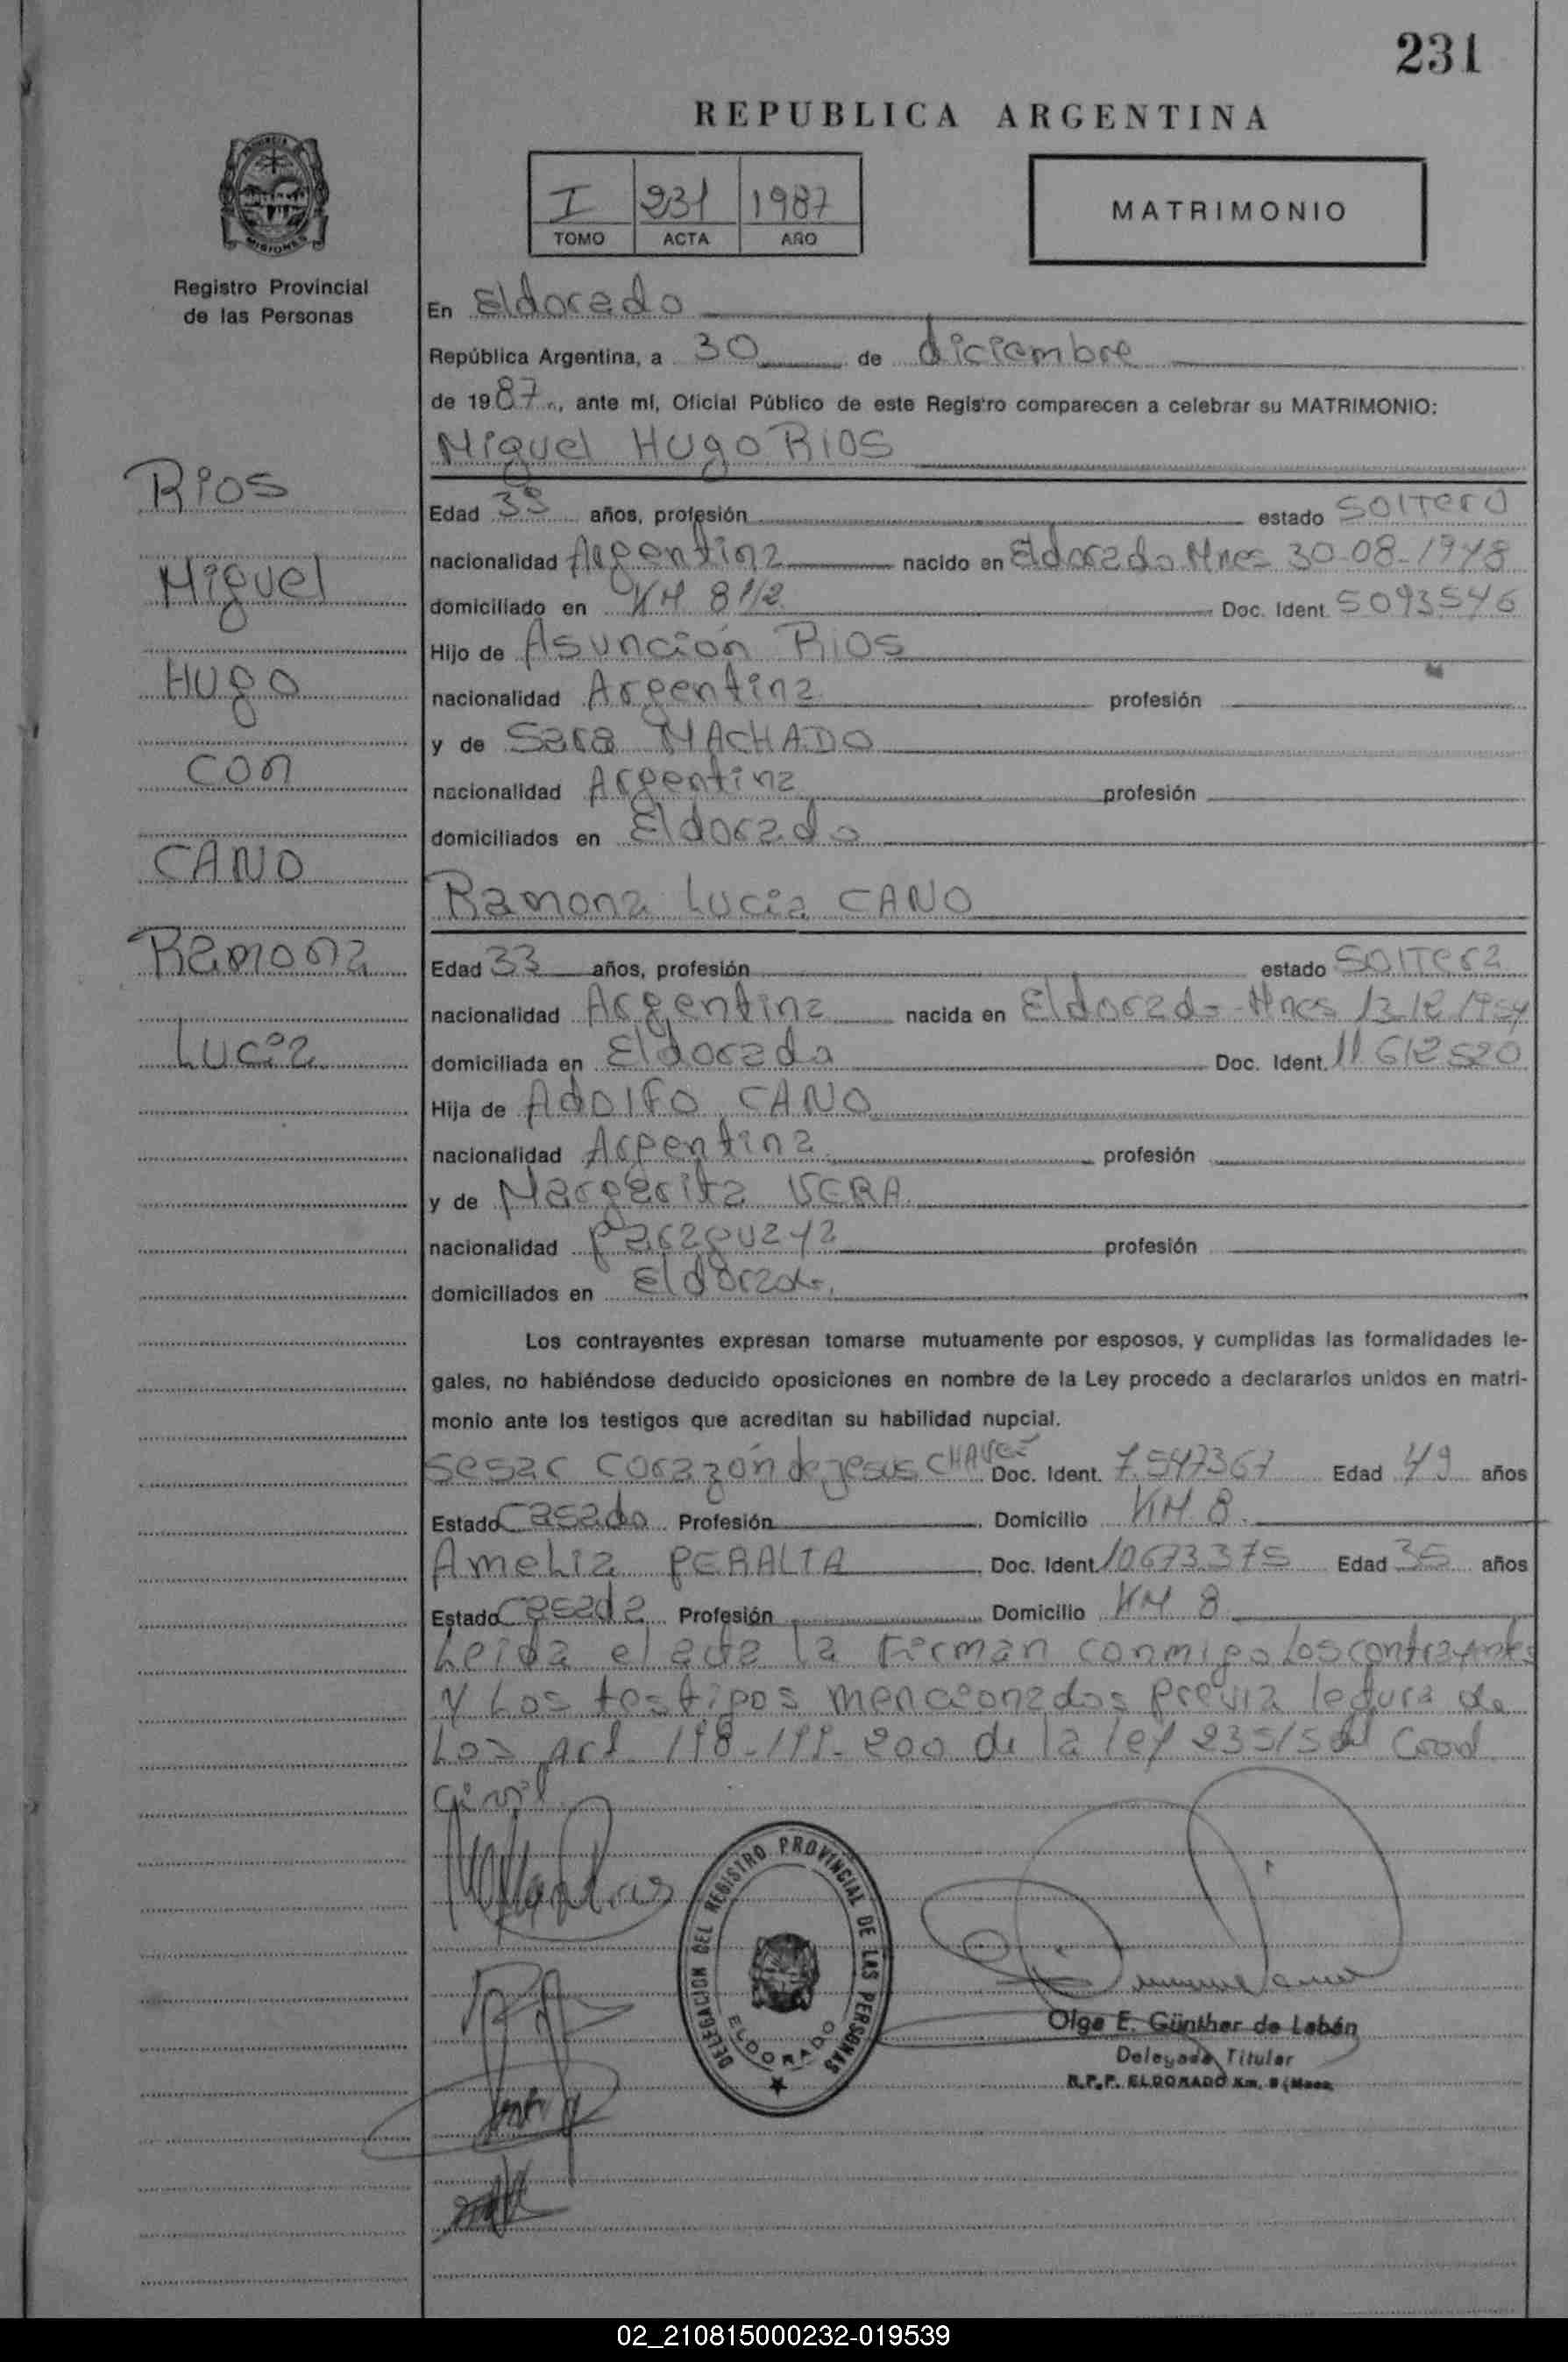 231
REPUBLICA ARGENTINA
I 231 1987
TOMO ACTA AÑO
MATRIMONIO
PROVINCIA
MISIONES
Registro Provincial
de las Personas
Rios
Miguel
Hugo
con
CANO
Ramona
Lucia
En Eldorado
República Argentina, a 30 de diciembre
de 1987, ante mí, Oficial Público de este Registro comparecen a celebrar su MATRIMONIO:
Miguel Hugo RIOS
Edad 39 años, profesión estado soltero
nacionalidad Argentina nacido en Eldorado Mnes 30-08-1948
domiciliado en KM 8 1/2 Doc. Ident. 5093546
Hijo de Asunción RIOS
nacionalidad Argentina profesión
y de Sara MACHADO
nacionalidad Argentina profesión
domiciliados en Eldorado
Ramona Lucia CANO
Edad 33 años, profesión estado soltera
nacionalidad Argentina nacida en Eldorado-Mnes 13-12-1954
domiciliada en Eldorado Doc. Ident. 11 612520
Hija de Adolfo CANO
nacionalidad Argentina profesión
y de Margarita VERA
nacionalidad paraguaya profesión
domiciliados en Eldorado
Los contrayentes expresan tomarse mutuamente por esposos, y cumplidas las formalidades le-
gales, no habiéndose deducido oposiciones en nombre de la Ley procedo a declararlos unidos en matri-
monio ante los testigos que acreditan su habilidad nupcial.
Sesar Corazón de jesus Doc. Ident. 7547367 Edad 49 años
Estado Casado Profesión Domicilio KM 8
Amelia PERALTA Doc. Ident. 10673375 Edad 35 años
Estado Casada Profesión Domicilio KM 8
Leida el acta la Firman conmigo Los contrayentes
y Los testigos mencionados previa lectura de
Los Art 198-199-200 de la ley 23515 del Cood
Civil
DELEGACION DEL REGISTRO PROVINCIAL DE LAS PERSONAS
ELDORADO
Olga E. Günther de Labán
Delegada Titular
R.P.P. ELDORADO Km. 8 (Mnes)
02_210815000232-019539